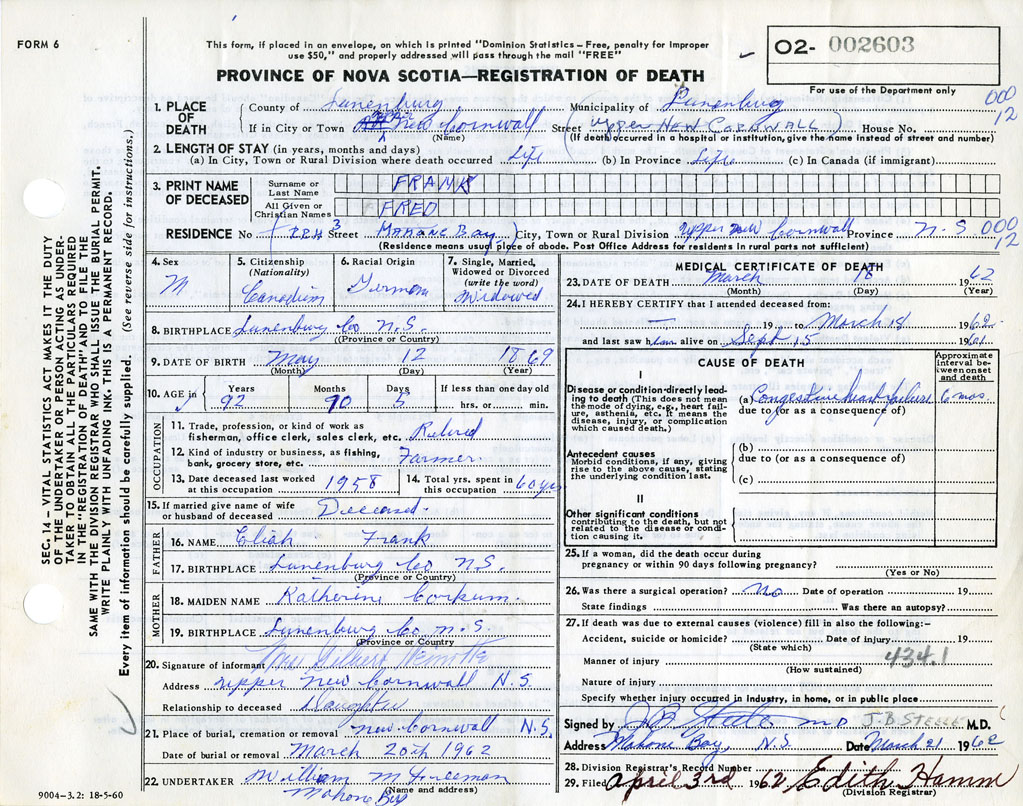 FORM 6
This form, if placed in an envelope, on which is printed "Dominion Statistics – Free, penalty for improper
use $50," and properly addressed will pass through the mail "FREE"
O2- 002603
PROVINCE OF NOVA SCOTIA—REGISTRATION OF DEATH
For use of the Department only
000
12
1. PLACE OF DEATH
County of Lunenburg Municipality of Lunenburg
If in City or Town New Cornwall (Name) Street (Upper New Cornwall) House No.
(If death occurred in a hospital or institution, give the name instead of street and number)
2. LENGTH OF STAY (in years, months and days)
(a) In City, Town or Rural Division where death occurred Life (b) In Province Life (c) In Canada (if immigrant)
3. PRINT NAME OF DECEASED
Surname or Last Name FRANK
All Given or Christian Names FRED
RESIDENCE No RR# 3 Street Mahone Bay City, Town or Rural Division Upper New Cornwall Province N-S 000
12
(Residence means usual place of abode. Post Office Address for residents in rural parts not sufficient)
4. Sex M
5. Citizenship (Nationality) Canadian
6. Racial Origin German
7. Single, Married, Widowed or Divorced (write the word) Widowed
8. BIRTHPLACE Lunenburg Co N.S.
(Province or Country)
9. DATE OF BIRTH May 12 1869
(Month) (Day) (Year)
10. AGE in Years 92 Months 90 Days 5 If less than one day old hrs. or min.
OCCUPATION
11. Trade, profession, or kind of work as fisherman, office clerk, sales clerk, etc. Retired
12. Kind of industry or business, as fishing, bank, grocery store, etc. Farmer
13. Date deceased last worked at this occupation 1958
14. Total yrs. spent in this occupation 60 yrs
15. If married give name of wife or husband of deceased Deceased.
FATHER
16. NAME Eliah Frank
17. BIRTHPLACE Lunenburg Co N.S.
(Province or Country)
MOTHER
18. MAIDEN NAME Katherine Corkum.
19. BIRTHPLACE Lunenburg Co N.S.
(Province or Country
20. Signature of informant Mrs Gilbert
Address Upper New Cornwall N.S.
Relationship to deceased Daughter
21. Place of burial, cremation or removal New Cornwall N.S.
Date of burial or removal March 20th 1962
22. UNDERTAKER William M Freeman
Mahone Bay
(Name and address)
9004–3.2: 18-5-60
MEDICAL CERTIFICATE OF DEATH
23. DATE OF DEATH March 18 1962
(Month) (Day) (Year)
24. I HEREBY CERTIFY that I attended deceased from:
— 19 to March 18 1962
and last saw him alive on Sept 15 1961
CAUSE OF DEATH
Approximate interval between onset and death
I
Disease or condition directly leading to death (This does not mean the mode of dying, e.g., heart failure, asthenia, etc. It means the disease, injury, or complication which caused death.)
(a) Congestive heart failure 6 mos
due to (or as a consequence of)
Antecedent causes
Morbid conditions, if any, giving rise to the above cause, stating the underlying condition last.
(b)
due to (or as a consequence of)
(c)
II
Other significant conditions
contributing to the death, but not related to the disease or condition causing it.
25. If a woman, did the death occur during
pregnancy or within 90 days following pregnancy?
(Yes or No)
26. Was there a surgical operation? No Date of operation 19
State findings Was there an autopsy?
27. If death was due to external causes (violence) fill in also the following:–
Accident, suicide or homicide? Date of injury 19
(State which)
434.1
Manner of injury
(How sustained)
Nature of injury
Specify where injury occurred in industry, in home, or in public place
Signed by J B Steele MD J.B STEELE M.D.
Address Mahone Bay, N.S. Date March 21 1962
28. Division Registrar's Record Number
29. Filed April 3rd 1962 Edith Hamm
(Division Registrar)
SEC. 14 – VITAL STATISTICS ACT MAKES IT THE DUTY
OF THE UNDERTAKER OR PERSON ACTING AS UNDER-
TAKER TO OBTAIN ALL THE PARTICULARS REQUIRED
IN THE "REGISTRATION OF DEATH" AND TO FILE THE
SAME WITH THE DIVISION REGISTRAR WHO SHALL ISSUE THE BURIAL PERMIT.
WRITE PLAINLY WITH UNFADING INK. THIS IS A PERMANENT RECORD.
Every item of information should be carefully supplied. (See reverse side for instructions.)